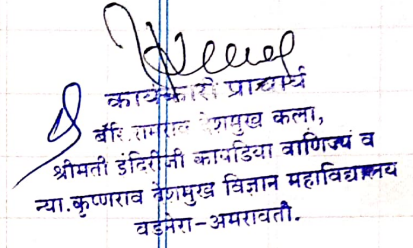 कार्यकारी प्राचार्य
बॅरि. रामराव देशमुख कला,
श्रीमती इंदिराजी कापडिया वाणिज्य व
न्या. कृष्णराव देशमुख विज्ञान महाविद्यालय
बडनेरा-अमरावती.